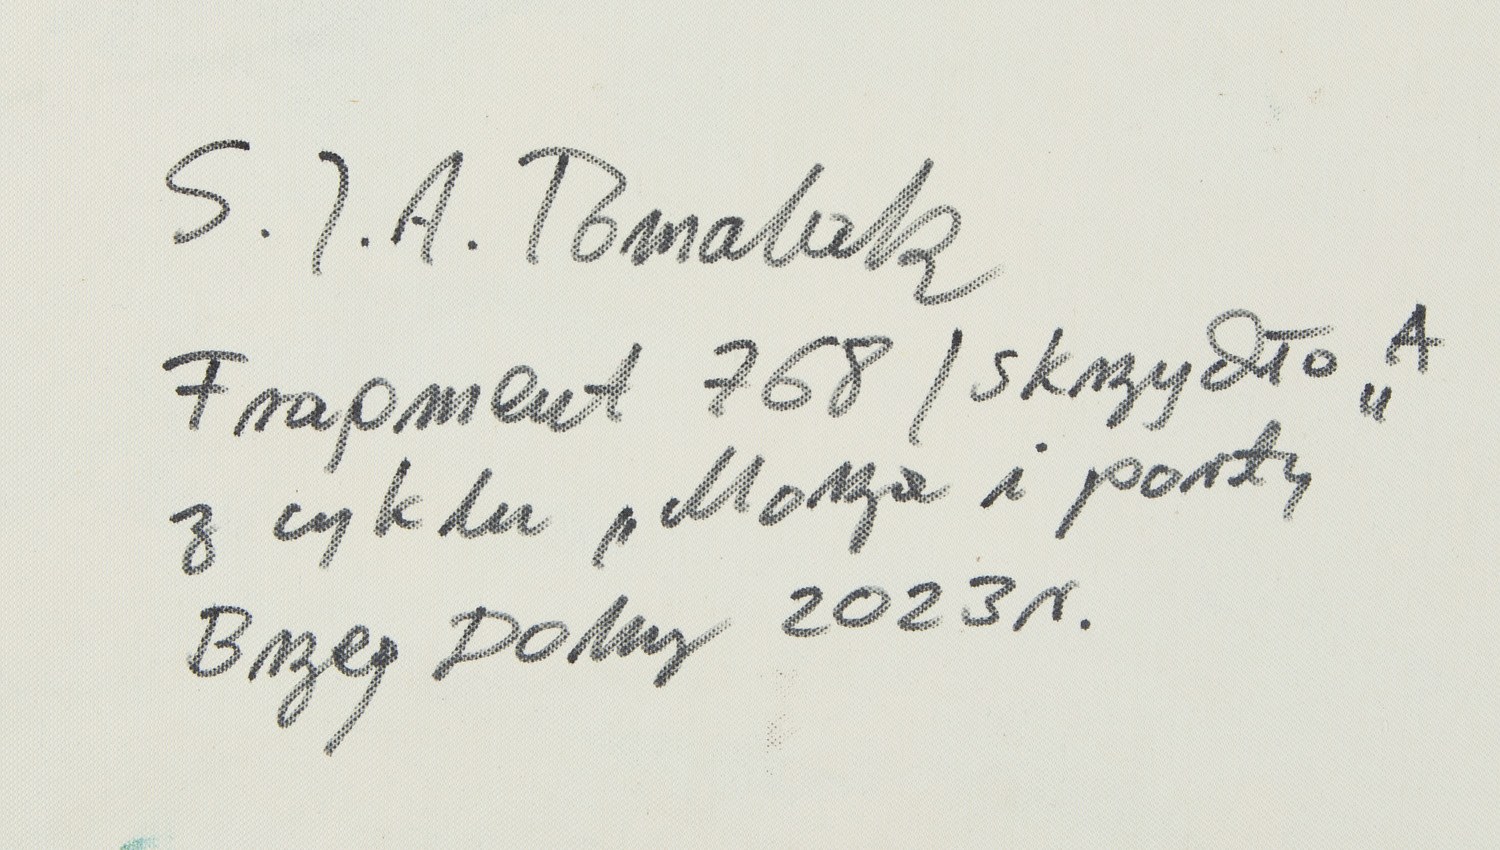 S. J. A. Tomalak
Fragment 768 / skrzydło „A
z cyklu „Morza i porty
Brzeg Dolny 2023r.